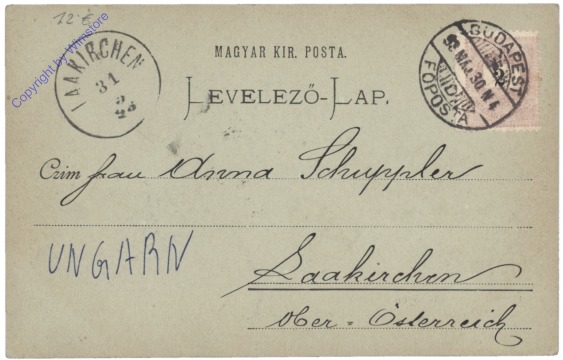 12 €
Copyright by Winstore
LAAKIRCHEN
31
5
98
MAGYAR KIR. POSTA.
LEVELEZŐ-LAP.
BUDAPEST
98 MAJ. 30 N 4
FŐPOSTA
frau Anna Schuppler
UNGARN
Laakirchen
Ober-Österreich